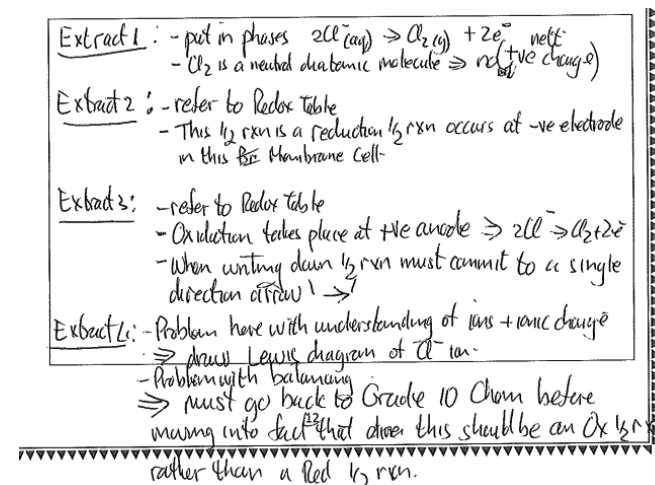 Extract 1 : - put in phases 2Cl⁻(aq) → Cl₂(g) + 2e⁻
- Cl₂ is a neutral diatomic molecule ⇒ no nett (+ve charge)
Extract 2 : - refer to Redox Table
- This ½ rxn is a reduction ½ rxn occurs at -ve electrode
in this Membrane Cell-
Extract 3: - refer to Redox Table
- Oxidation takes place at +ve anode ⇒ 2Cl⁻→Cl₂+2e⁻
- When writing down ½ rxn must commit to a single
direction arrow ' → '
Extract 4: - Problem here with understanding of ions + ionic charge
⇒ draw Lewis diagram of Cl⁻ ion.
- Problem with balancing
⇒ must go back to Grade 10 Chem before
moving into fact that this should be an Ox ½ rx
rather than a Red ½ rxn.